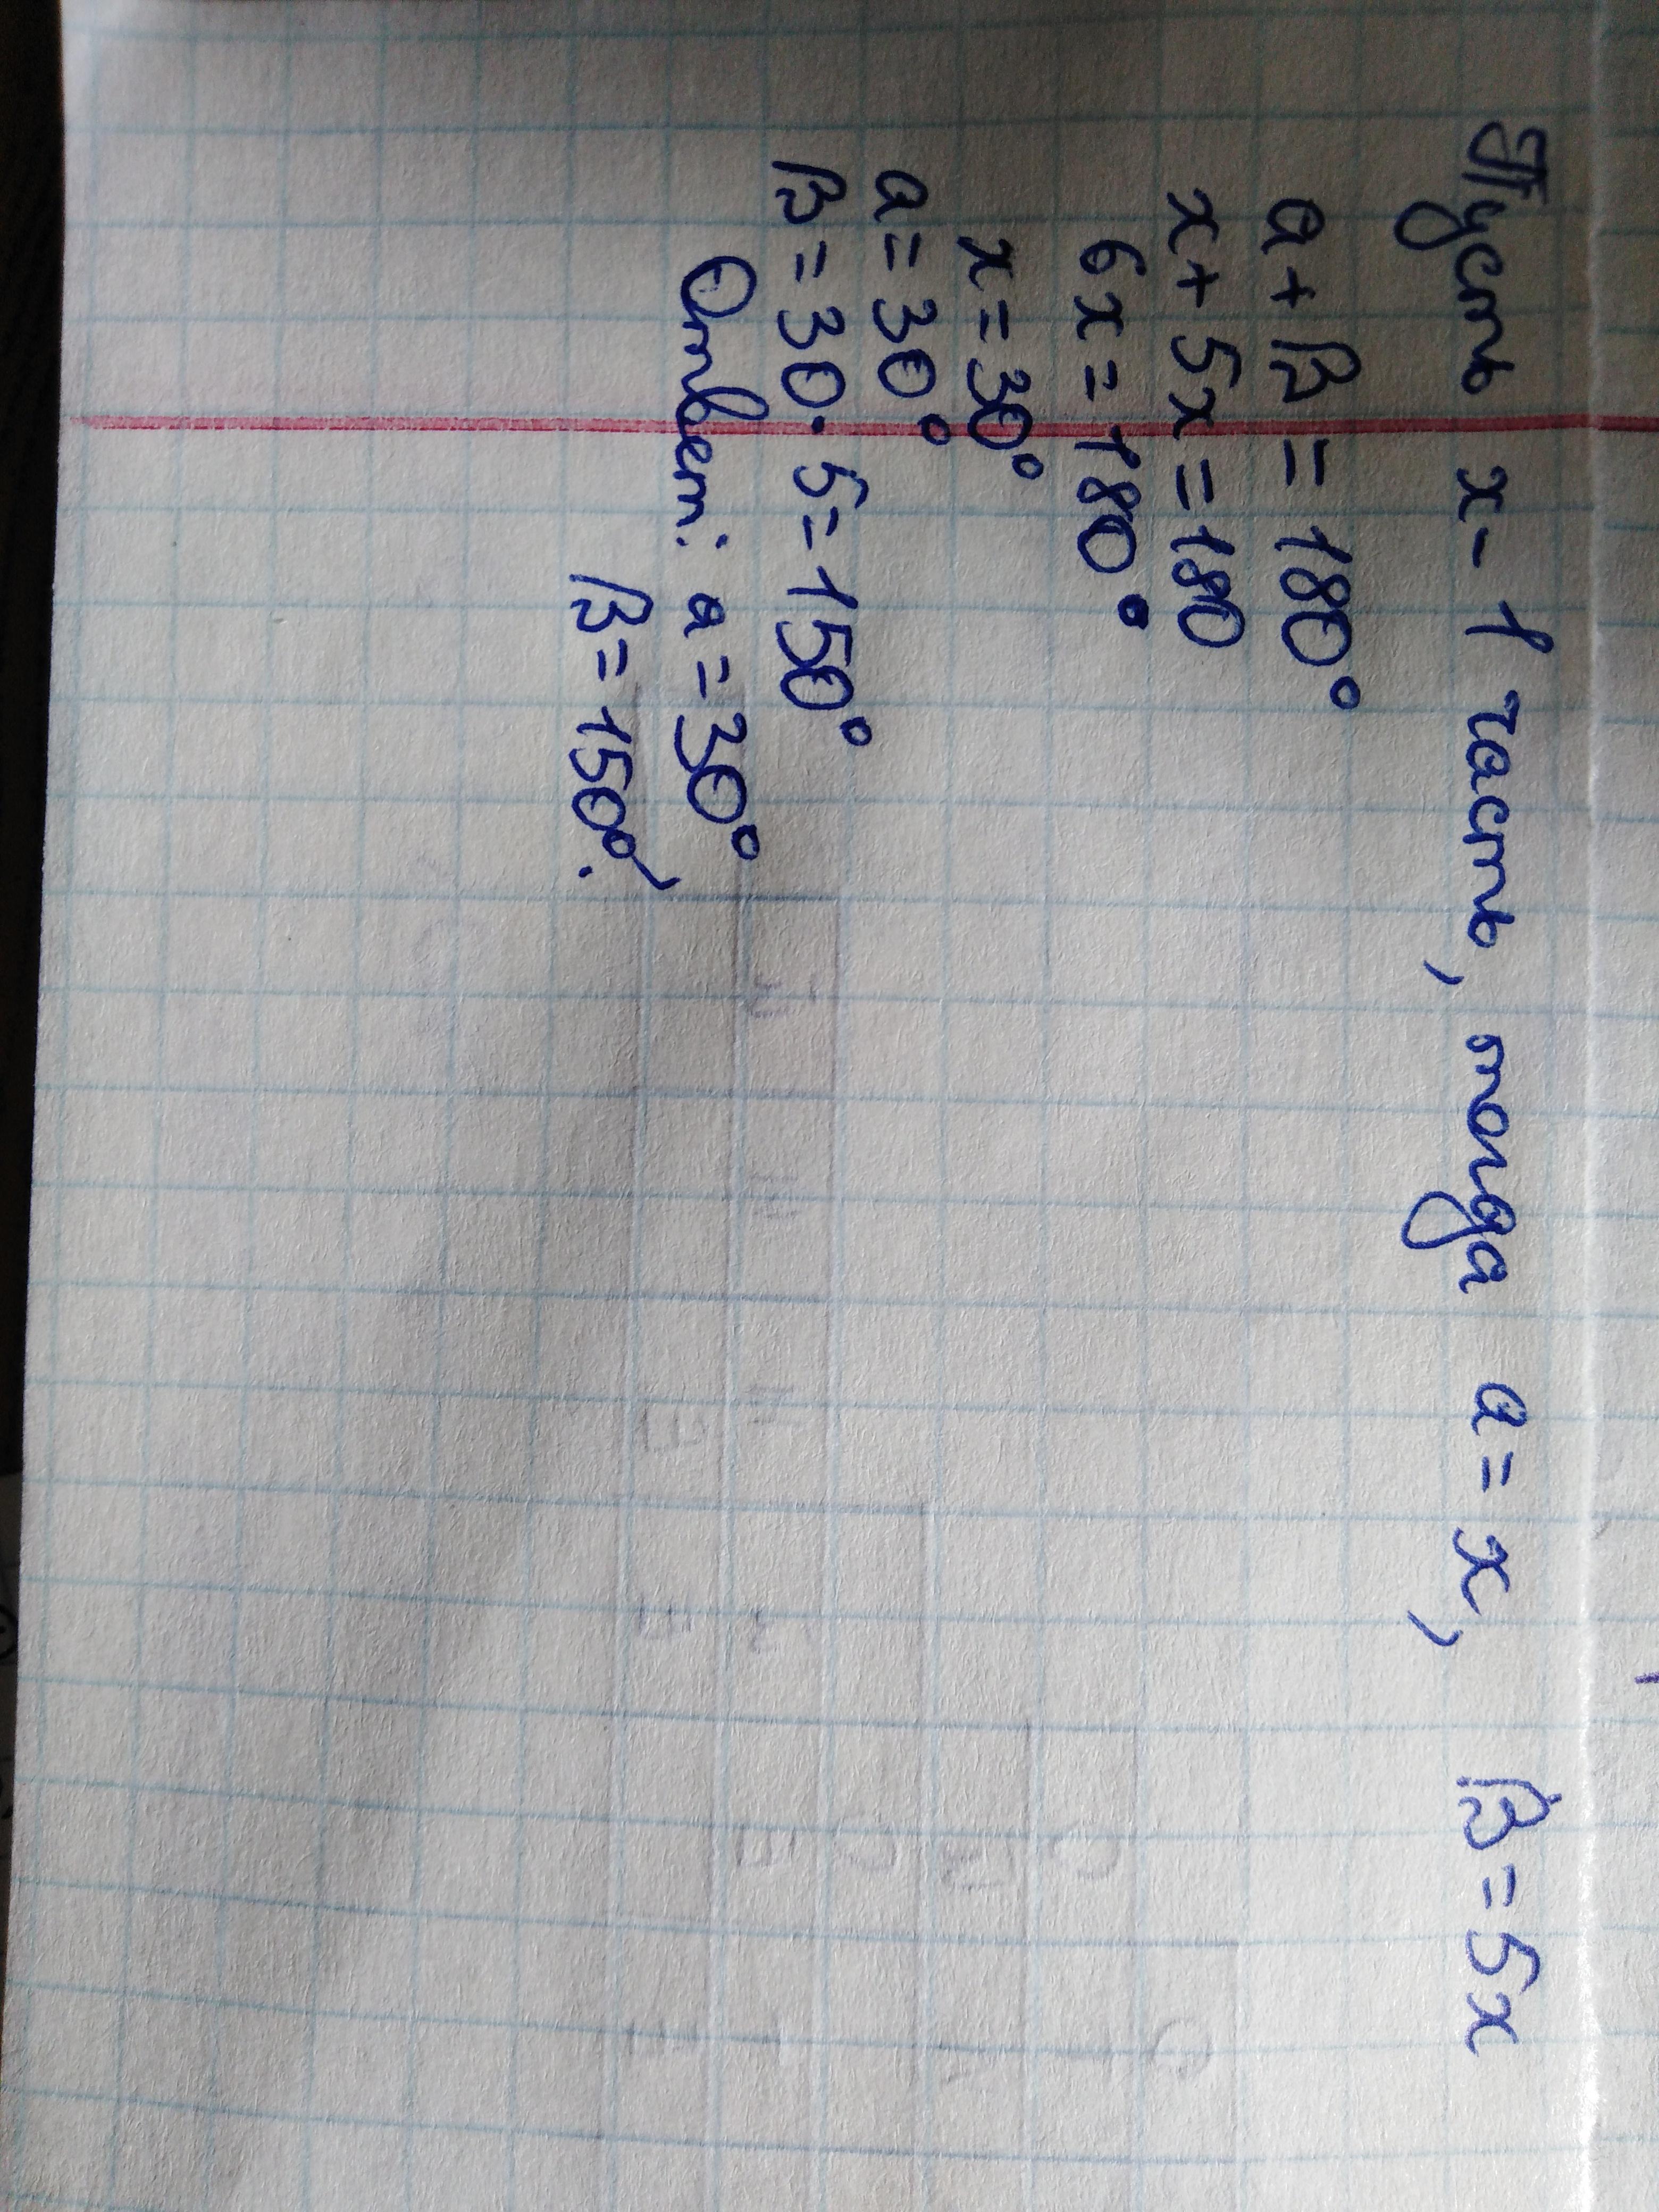 Пусть x - 1 часть, тогда a = x, β = 5x
a + β = 180°
x + 5x = 180
6x = 180°
x = 30°
a = 30°
β = 30 · 5 = 150°
Ответ: a = 30°,
β = 150°.